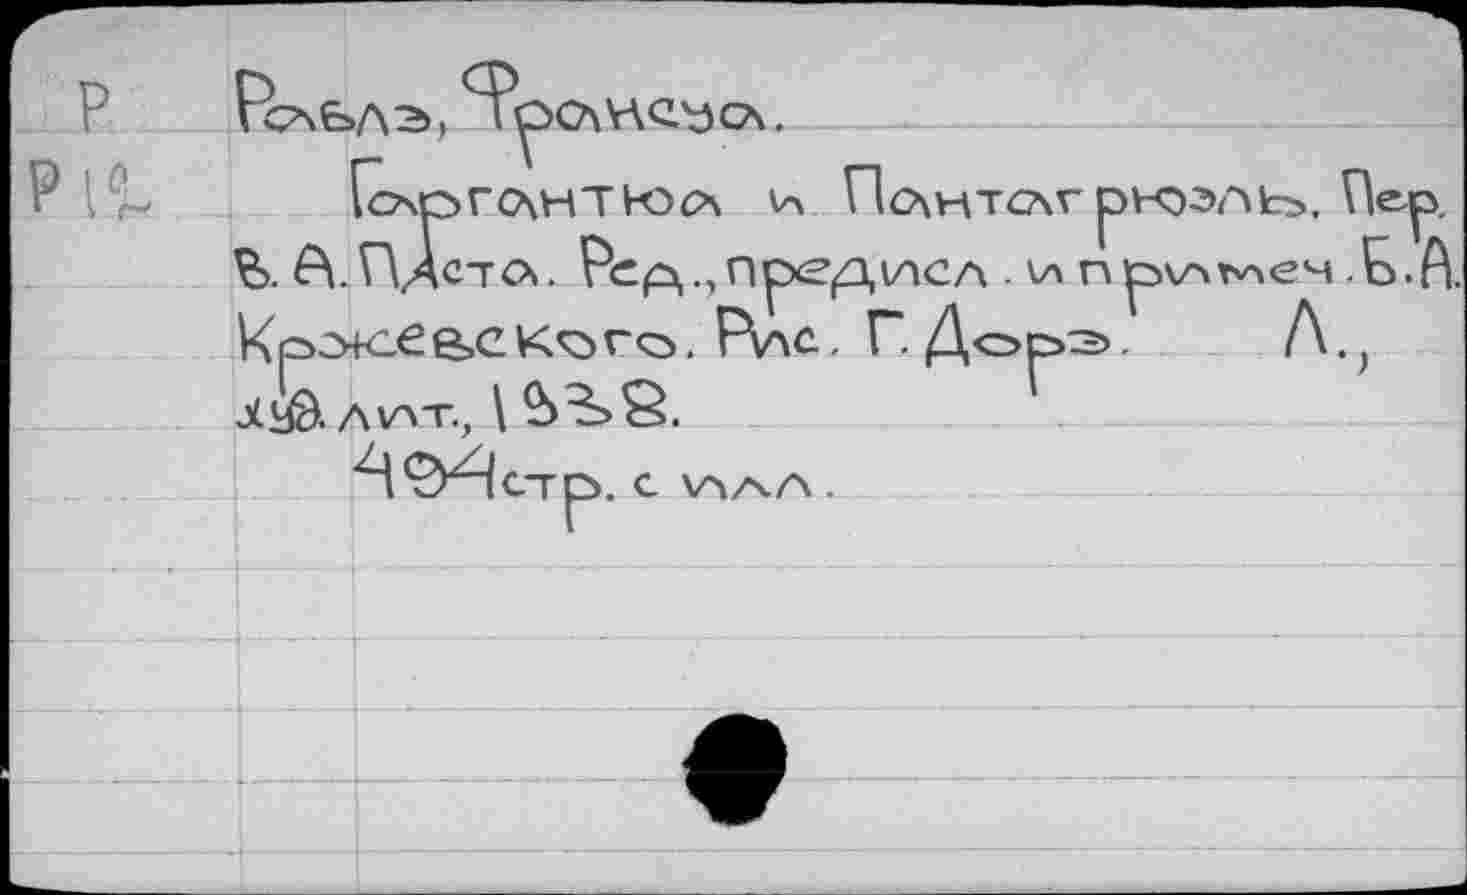 Р Рабле, Франсуа.
Р12 Гаргантюа и Пантагрюэль. Пер.
В. А. Пяста. Ред., предисл. и примеч. Б. А.
Кржевского. Рис. Г. Дорэ. Л.,
худ. лит., 1938.
494 стр. с илл.